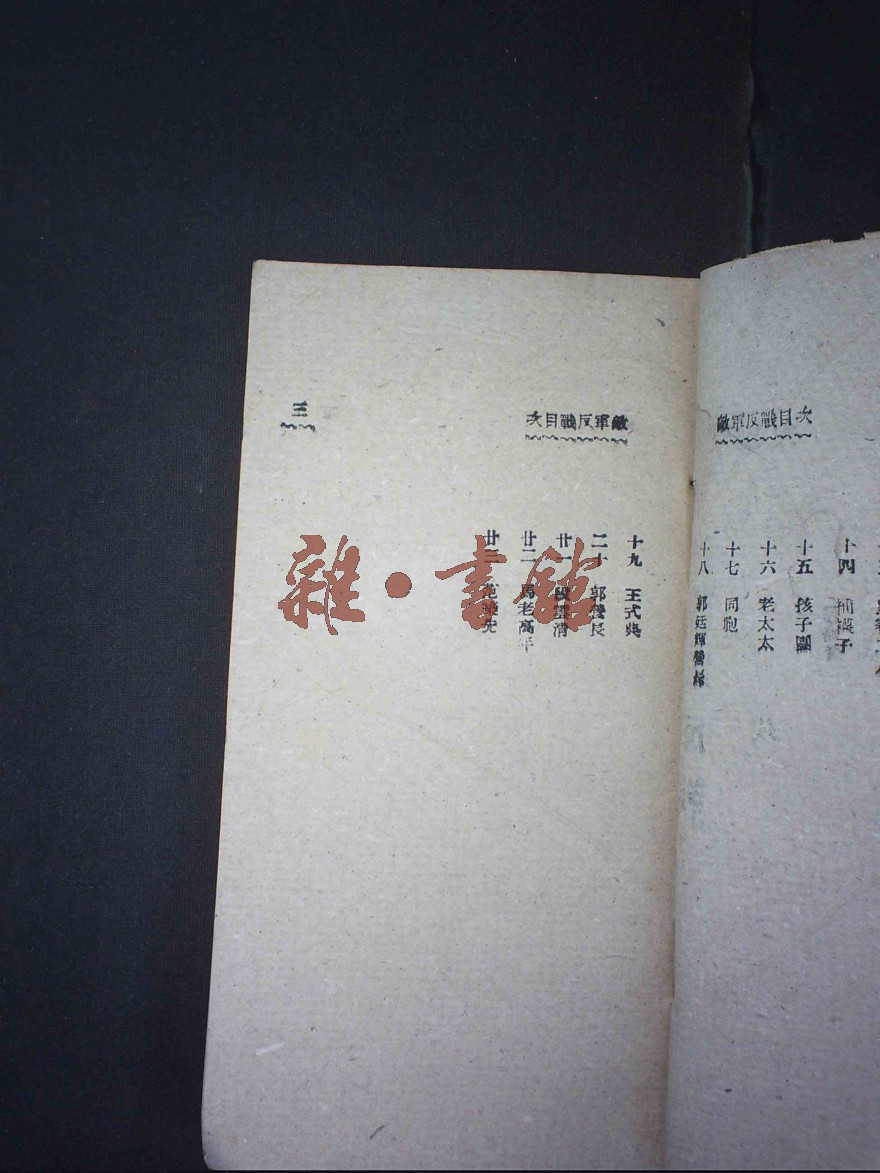 敵軍反戰目次
十四 補襪子
十五 孩子團
十六 老太太
十七 同胞
十八 郭廷輝
敵軍反戰目次
十九 王式
二十 郭長
廿一 雲清
廿二 周老高年
廿三
三
雜·書館